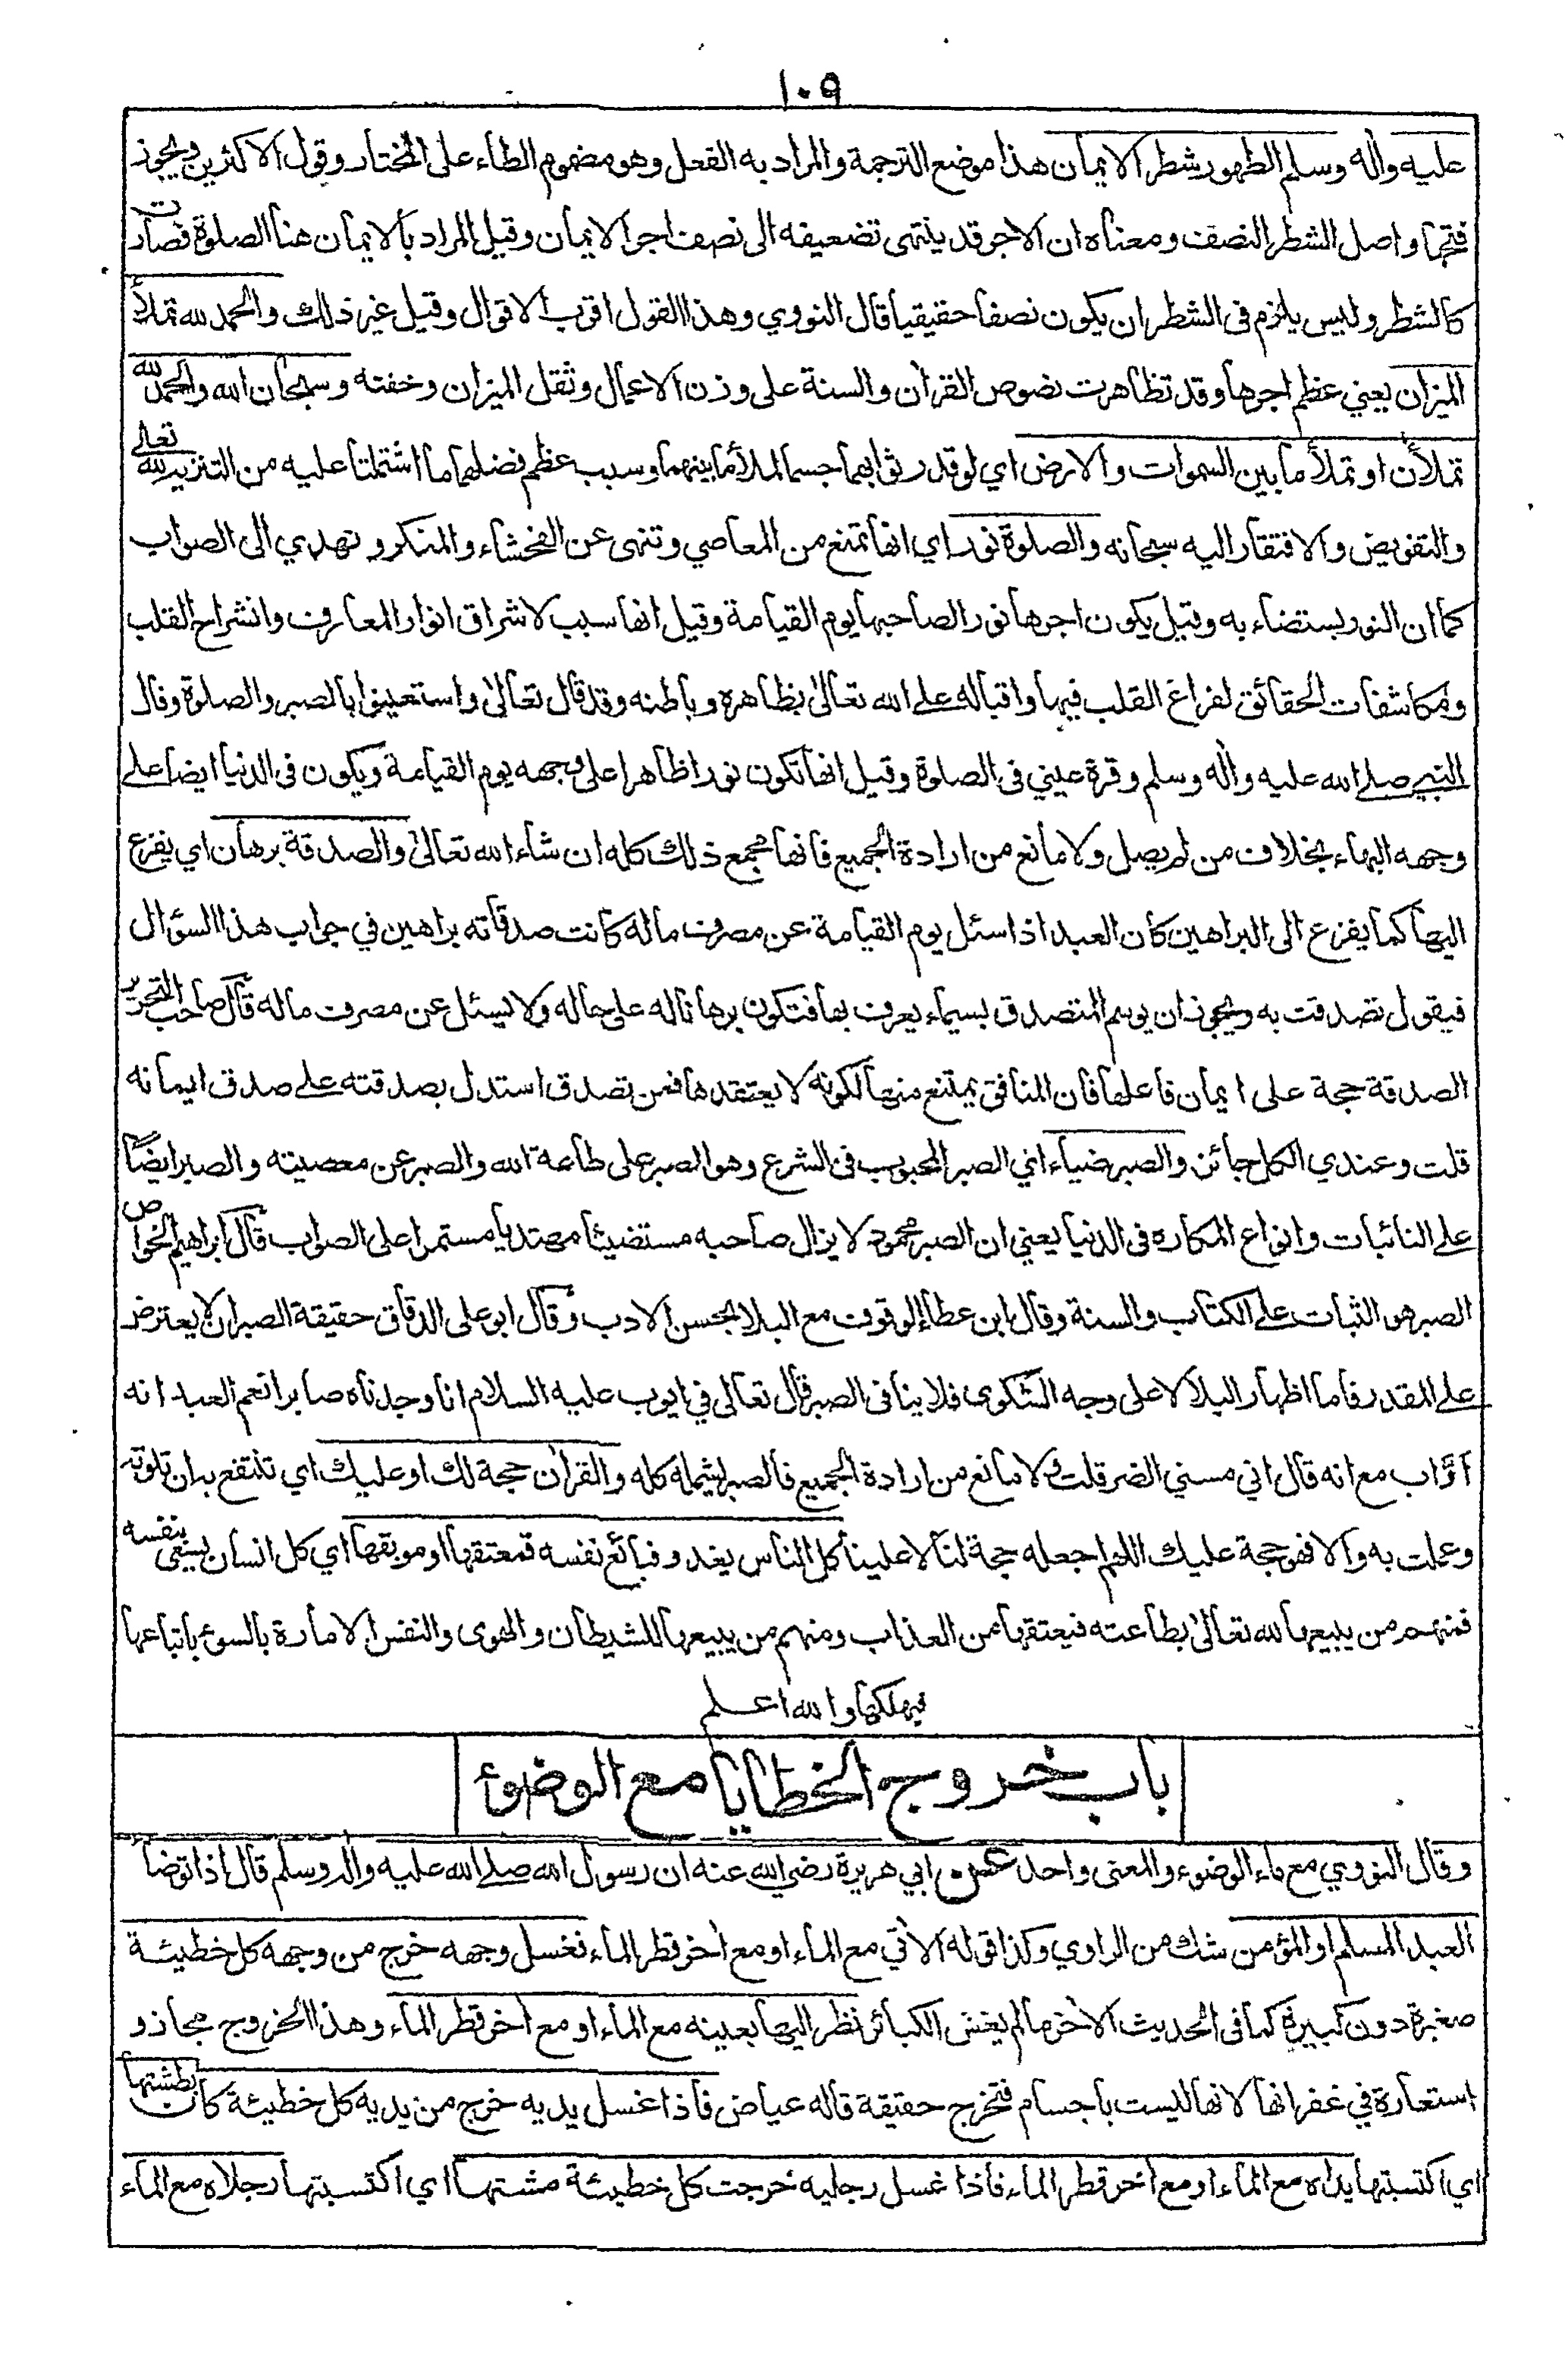 ١٠٩
عليه واٰله وسلم الطهور شطر الايمان هذا موضع الترجمة والمراد به الفعل وهو مضموم الطاء على المختار وقول الاكثرين ويجوز
فتحها واصل الشطر النصف ومعناه ان الاجر قد ينتهى تضعيفه الى نصف اجر الايمان وقيل المراد بالايمان هنا الصلوة فصارت
كالشطر وليس يلزم فى الشطر ان يكون نصفا حقيقيا قال النووي وهذا القول اقرب الاقوال وقيل غير ذلك والحمد لله تملأ
الميزان يعني عظم اجرها وقد تظاهرت نصوص القراٰن والسنة على وزن الاعمال وثقل الميزان وخفته وسبحان الله والحمد لله
تملأن او تملأ ما بين السموات والارض اي لو قدر ثوابهما جسما لملأ ما بينهما وسبب عظم فضلهما ما اشتملتا عليه من التنزيه لله تعالى
والتفويض والافتقار اليه سبحانه والصلوة نور اي انها تمنع من المعاصي وتنهى عن الفحشاء والمنكر وتهدي الى الصواب
كما ان النور يستضاء به وقيل يكون اجرها نورا لصاحبها يوم القيامة وقيل انها سبب لاشراق انوار المعارف وانشراح القلب
ومكاشفات الحقائق لفراغ القلب فيها واقباله على الله تعالىٰ بظاهره وباطنه وقد قال تعالىٰ واستعينوا بالصبر والصلوة وقال
النبي صلى الله عليه واٰله وسلم وقرة عيني فى الصلوة وقيل انها تكون نورا ظاهرا على وجهه يوم القيامة ويكون فى الدنيا ايضا على
وجهه البهاء بخلاف من لم يصل ولا مانع من ارادة الجميع فانها مجمع ذلك كله ان شاء الله تعالىٰ والصدقة برهان اي يفزع
اليها كما يفزع الى البراهين كان العبد اذا سئل يوم القيامة عن مصرف ماله كانت صدقاته براهين في جواب هذا السؤال
فيقول تصدقت به ويجوز ان يوسم المتصدق بسيماء يعرف بها فتكون برهانا له على حاله ولا يسئل عن مصرف ماله قال صاحب التحرير
الصدقة حجة على ايمان فاعلها فان المنافق يمتنع منها لكونه لا يعتقدها فمن تصدق استدل بصدقته على صدق ايمانه
قلت وعندي الكل جائز والصبر ضياء اي الصبر المحبوب فى الشرع وهو الصبر على طاعة الله والصبر عن معصيته والصبر ايضًا
على النائبات وانواع المكاره فى الدنيا يعني ان الصبر محمود لا يزال صاحبه مستضيئا مهتديا مستمرا على الصواب قال ابراهيم الخواص
الصبر هو الثبات على الكتاب والسنة وقال ابن عطاء الوقوف مع البلاء بحسن الادب وقال ابو على الدقاق حقيقة الصبر ان لا يعترض
على المقدر فاما اظهار البلاء لا على وجه الشكوى فلا ينافى الصبر قال تعالى في ايوب عليه السلام انا وجدناه صابرا نعم العبد انه
اوّاب مع انه قال اني مسني الضر قلت ولا مانع من ارادة الجميع فالصبر يشمله كله والقراٰن حجة لك او عليك اي تنتفع به ان تلوته
وعملت به والا فهو حجة عليك اللهم اجعله حجة لنا لا علينا كل الناس يغدو فبائع نفسه فمعتقها او موبقها اي كل انسان يسعى بنفسه
فمنهم من يبيعها لله تعالىٰ بطاعته فيعتقها من العذاب ومنهم من يبيعها للشيطان والهوى والنفس الامارة بالسوء باتباعها
فيهلكها والله اعلم
باب خروج الخطايا مع الوضوء
وقال النووي مع ماء الوضوء والمعنى واحد عن ابي هريرة رضي الله عنه ان رسول الله صلى الله عليه واٰله وسلم قال اذا توضأ
العبد المسلم او المؤمن شك من الراوي وكذا قوله الاٰتي مع الماء او مع اٰخر قطر الماء فغسل وجهه خرج من وجهه كل خطيئة
صغيرة دون كبيرة كما فى الحديث الاٰخر ما لم يغش الكبائر نظر اليها بعينه مع الماء او مع اٰخر قطر الماء وهذا الخروج مجاز و
استعارة في غفرانها لانها ليست باجسام فتخرج حقيقة قاله عياض فاذا غسل يديه خرج من يديه كل خطيئة كان بطشتها
اي اكتسبتها يداه مع الماء او مع اٰخر قطر الماء فاذا غسل رجليه خرجت كل خطيئة مشتها اي اكتسبتها رجلاه مع الماء